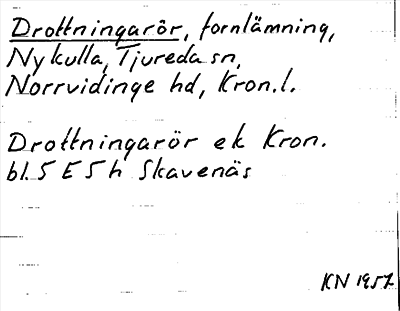 Drottningarör, fornlämning,
Nykulla, Tjureda sn,
Norrvidinge hd, Kron.l.
Drottningarör ek Kron.
bl. 5 E 5 h Skavenäs
KN 1957